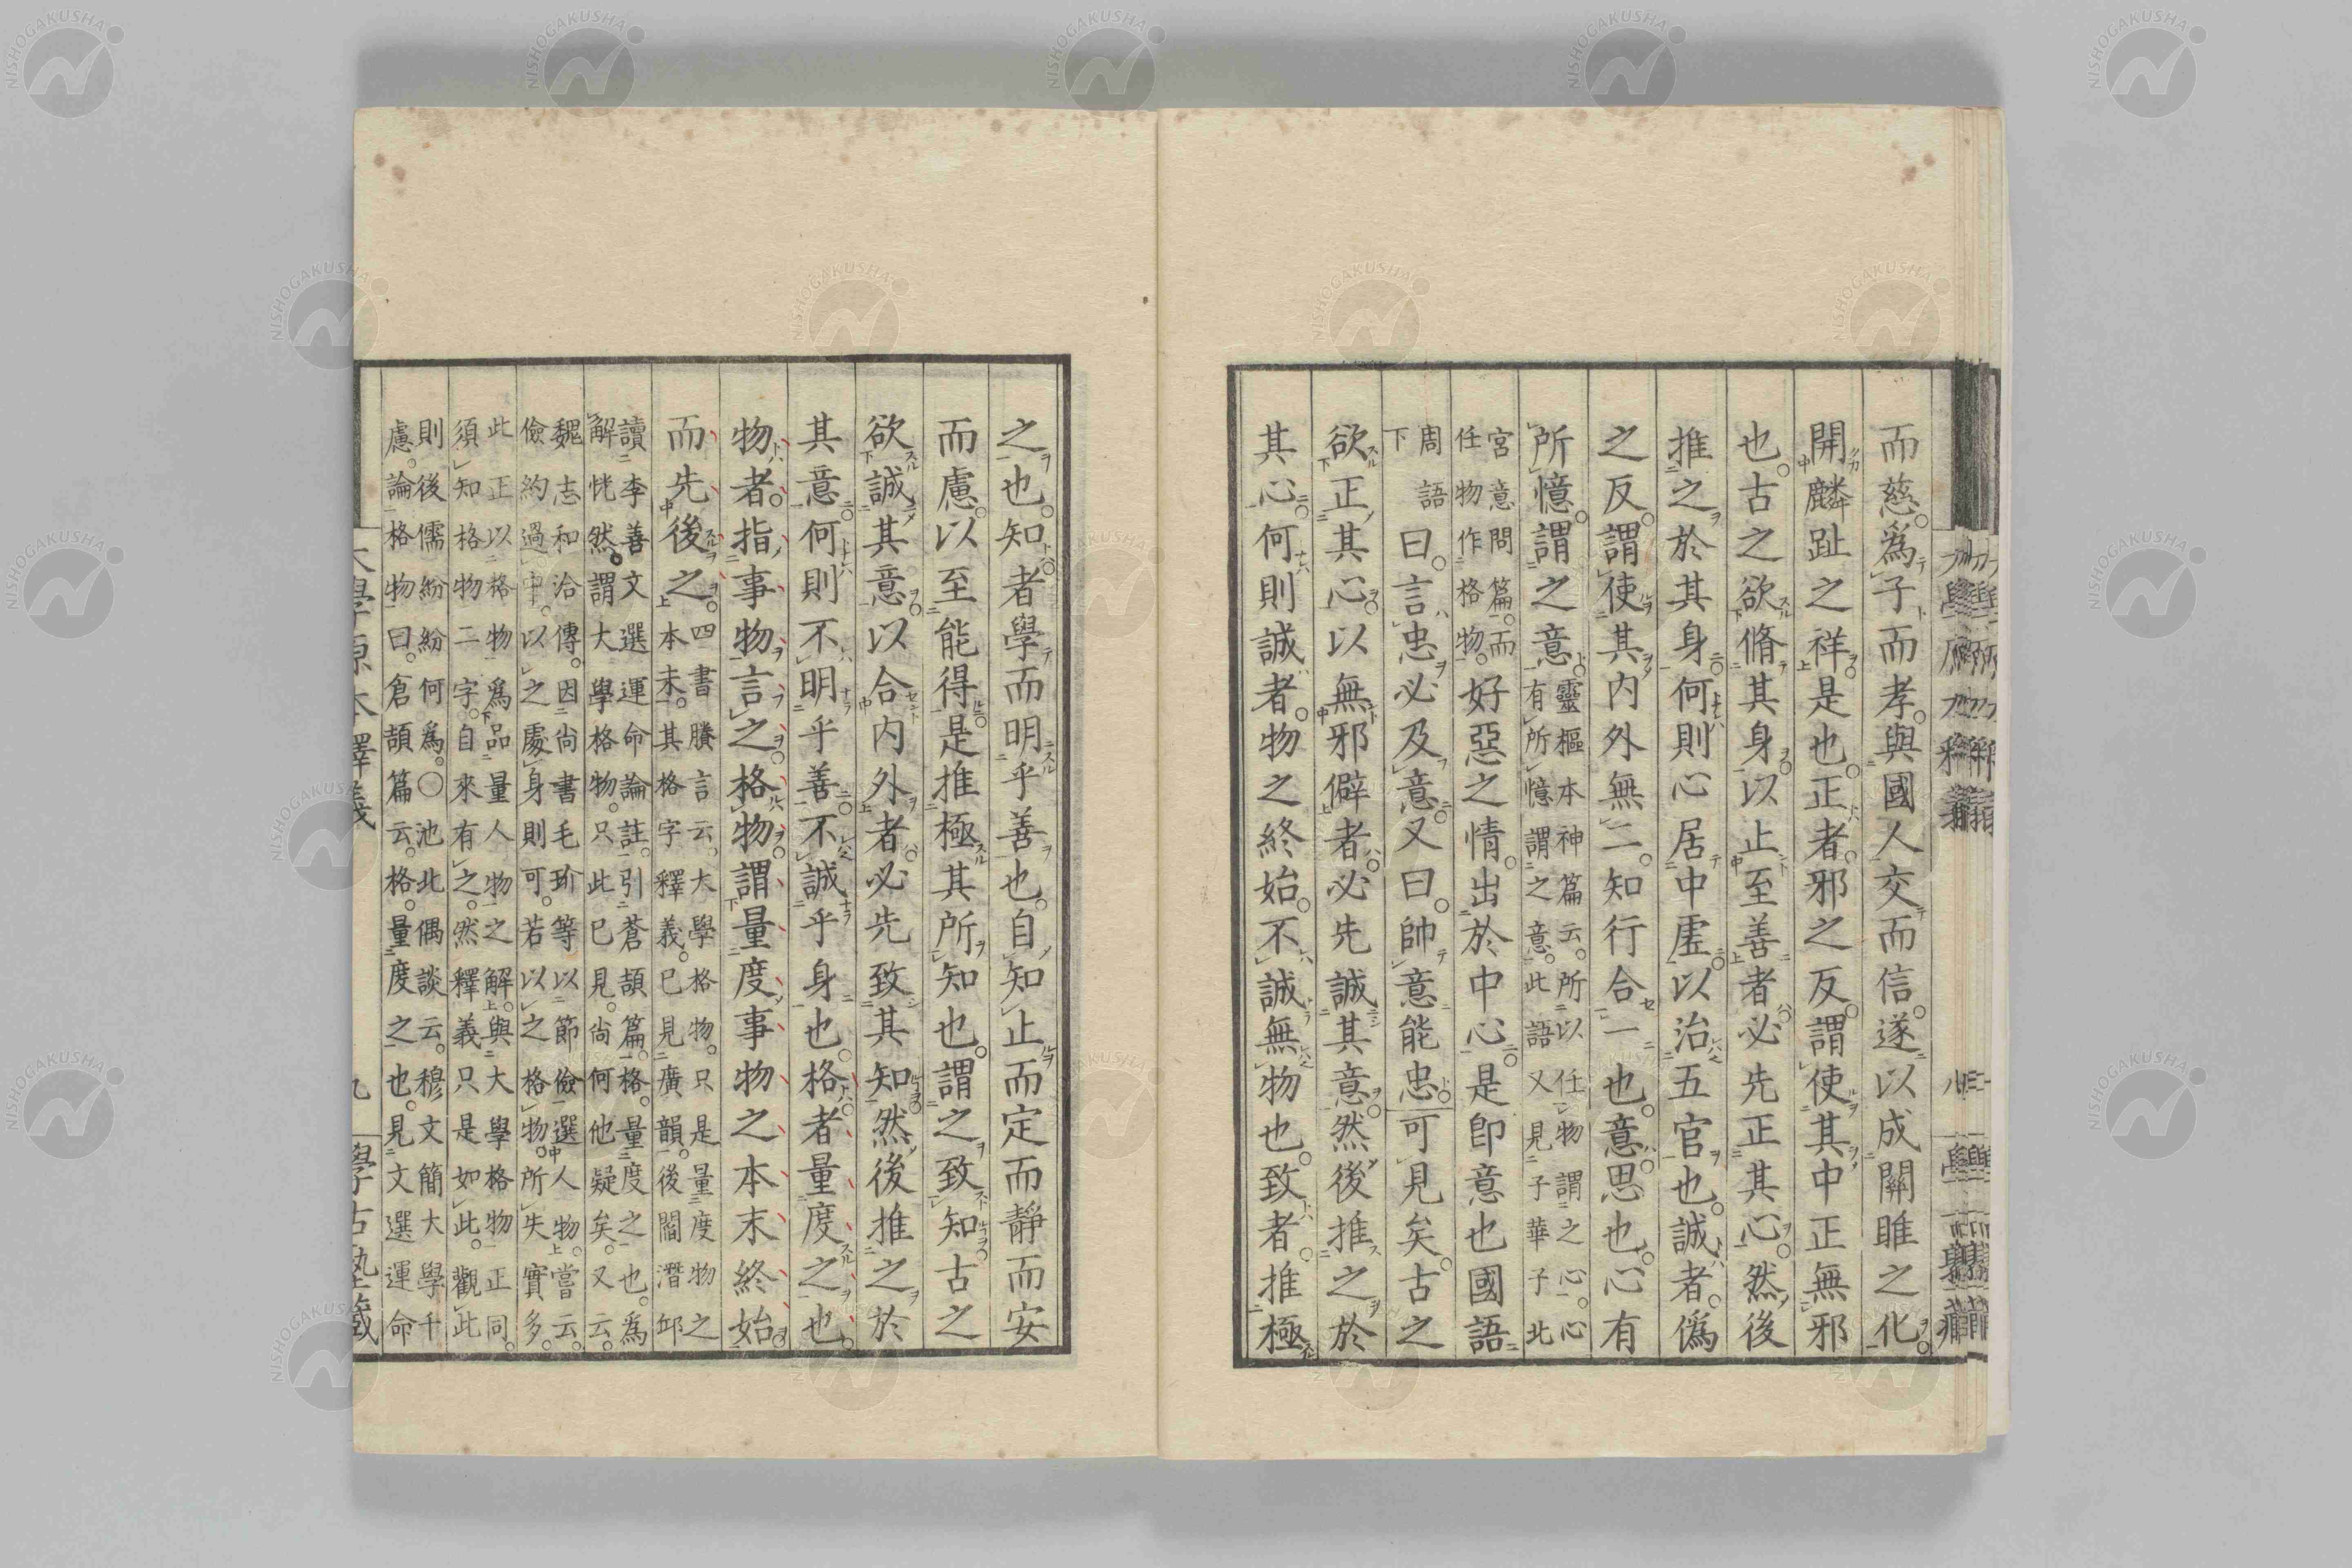 而慈爲子而孝與國人交而信遂以成關雎之化
開麟趾之祥是也正者邪之反謂使其中正無邪
也古之欲脩其身以止至善者必先正其心然後
推之於其身何則心居中虛以治五官也誠者僞
之反謂使其内外無二知行合一也意思也心有
所憶謂之意
靈樞本神篇云所以任物謂之心心
有所憶謂之意此語又見子華子北
宮意問篇而
任物作格物
好惡之情出於中心是卽意也國語
周語
下
曰言忠必及意又曰帥意能忠可見矣古之
欲正其心以無邪僻者必先誠其意然後推之於
其心何則誠者物之終始不誠無物也致者推極
之也知者學而明乎善也自知止而定而靜而安
而慮以至能得是推極其所知也謂之致知古之
欲誠其意以合内外者必先致其知然後推之於
其意何則不明乎善不誠乎身也格者量度之也
物者指事物言之格物謂量度事物之本末終始
而先後之
四書賸言云大學格物只是量度物之
本末其格字釋義已見廣韻後閻潛邱
讀李善文選運命論註引蒼頡篇格量度之也爲
解恍然謂大學格物只此已見尙何他疑矣又云
魏志和洽傳因尙書毛玠等以節儉選人物嘗云
儉約過中以之處身則可若以之格物所失實多
此正以格物爲品量人物之解與大學格物正同
須知格物二字自來有之然釋義只是如此觀此
則後儒紛紛何爲○池北偶談云穆文簡大學千
慮論格物曰倉頡篇云格量度之也見文選運命
大學原本釋義 九 學古塾藏